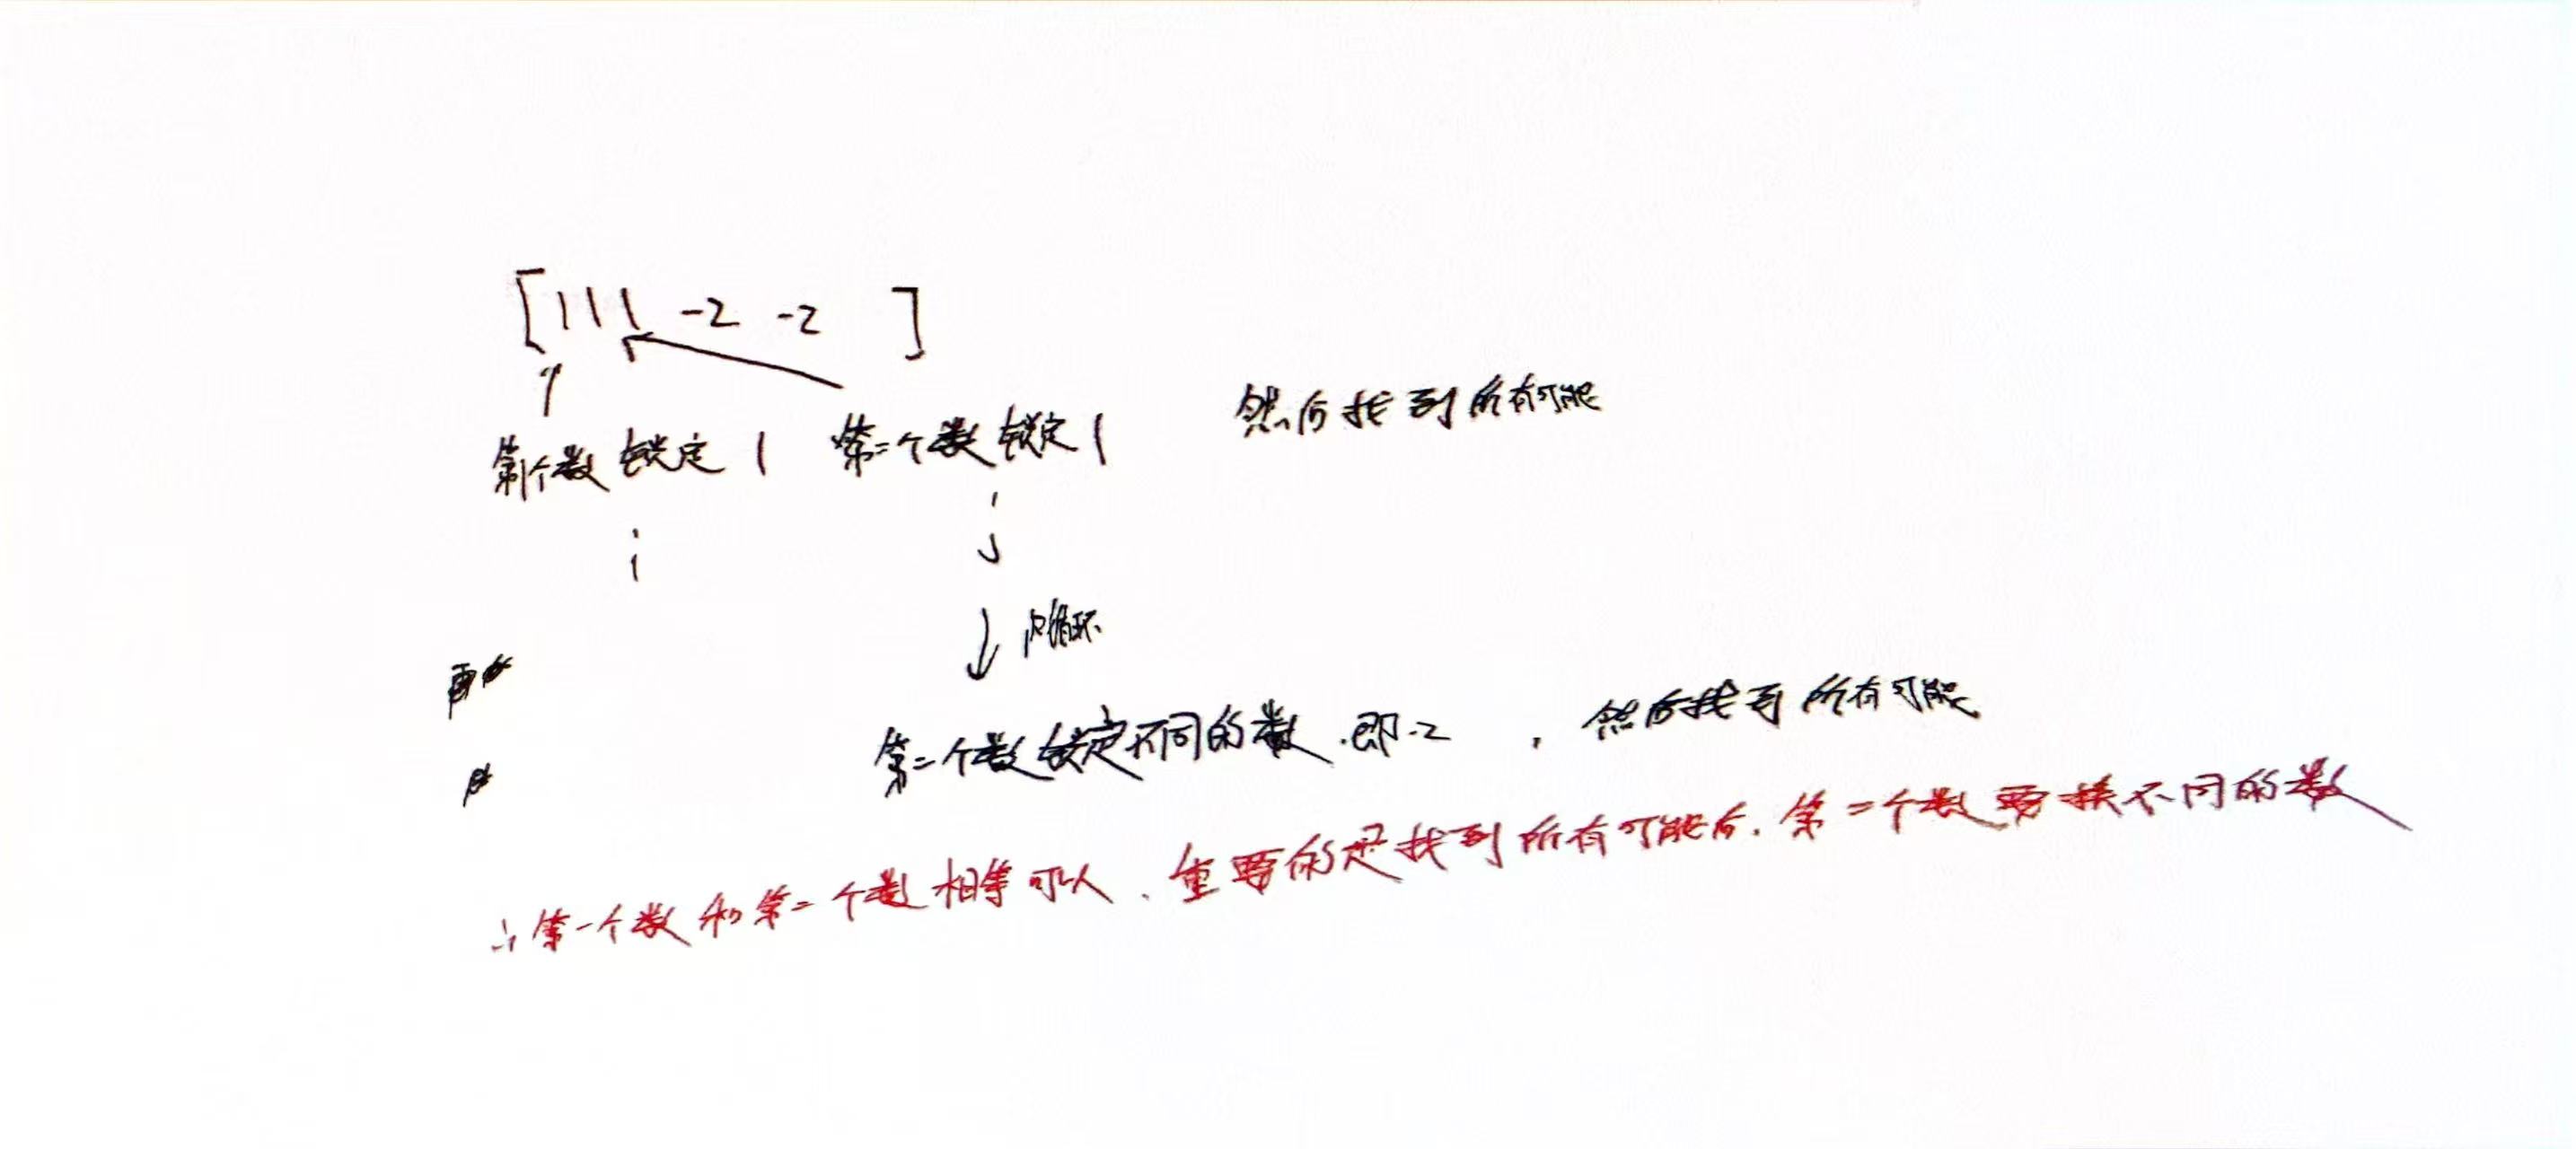 [111 -2 -2 ]
第1个数锁定1 第二个数锁定1 然后找到所有可能
i j
↓内循环
再
第二个数锁定不同的数.即-2 , 然后找到所有可能
∴第一个数和第二个数相等可以、重要的是找到所有可能后.第二个数要换不同的数